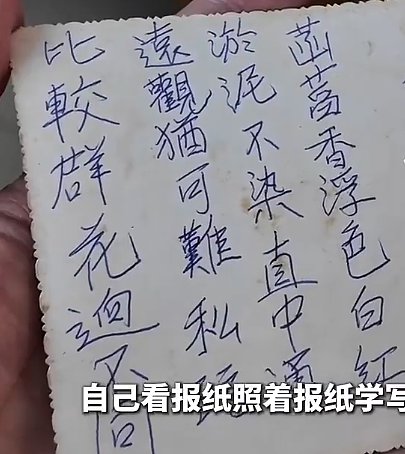 菡萏香浮色白紅
淤泥不染直中通
遠觀猶可難私玩
比較群花迥不同
自己看报纸照着报纸学写